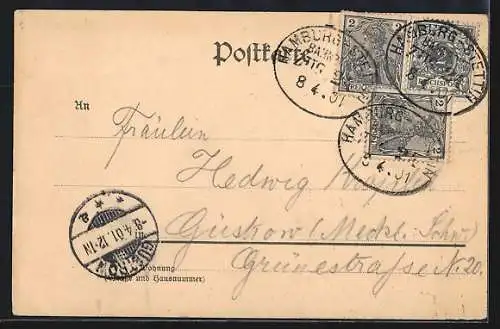 Postkarte
HAMBURG-STETTIN
BAHNPOST
8 4.01
HAMBURG-STETTIN
8 4.01
HAMBURG-
8 4.01
2 2
2
REICHSPOST
2
An
Fräulein
Hedwig
Güstrow (Meckl. Schw.)
Grünestraße N. 20.
GÜSTROW
-8/4.01.12-1N
* * a
Wohnung
(Straße und Hausnummer)